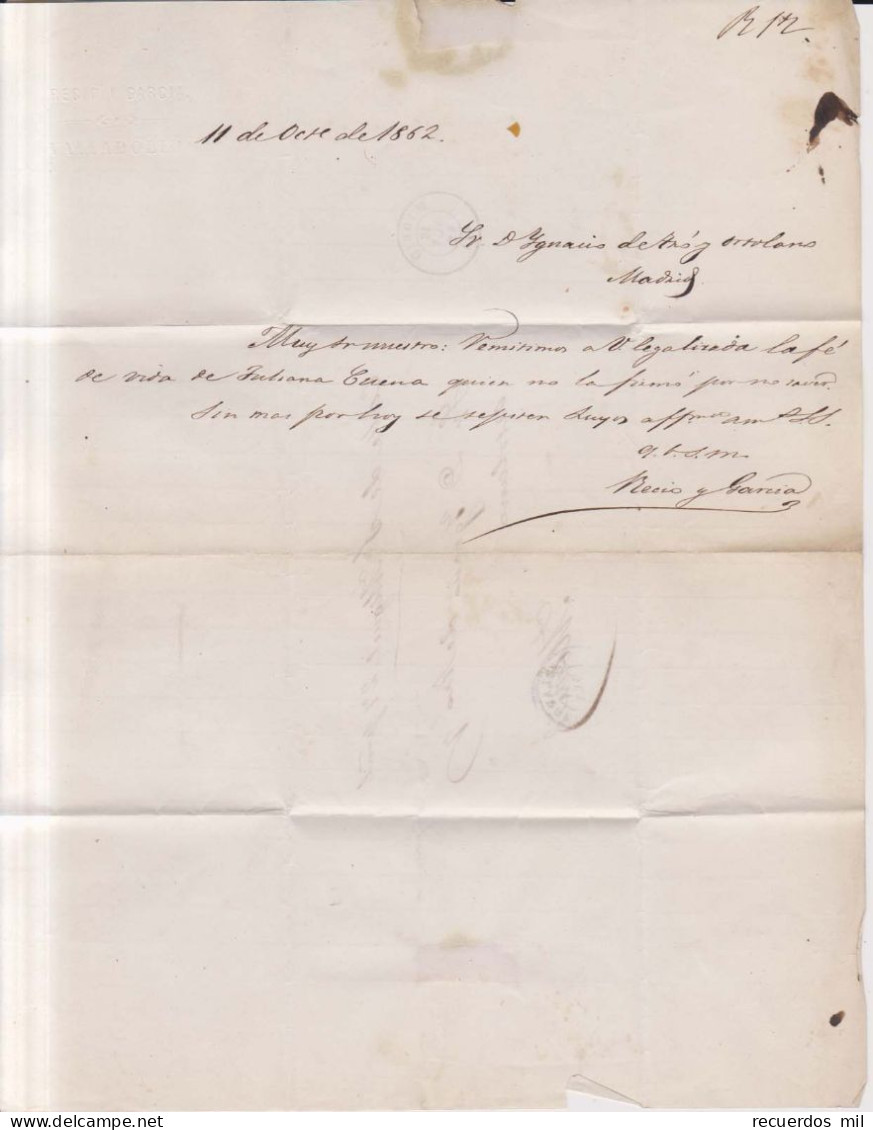 R 12.
RECIO Y GARCIA.
VALLADOLID
11 de Octe de 1862.
Sr. D Ygnacio de Yñó y Ortolano
Madrid
Muy Sr nuestro: Remitimos a V. legalizada la fé
de vida de Juliana Cuena quien no la firmó por no saver.
Sin mas por hoy se repiten suyos affmos am SS.
q.b.s.m.
Recio y Garcia
recuerdos mil